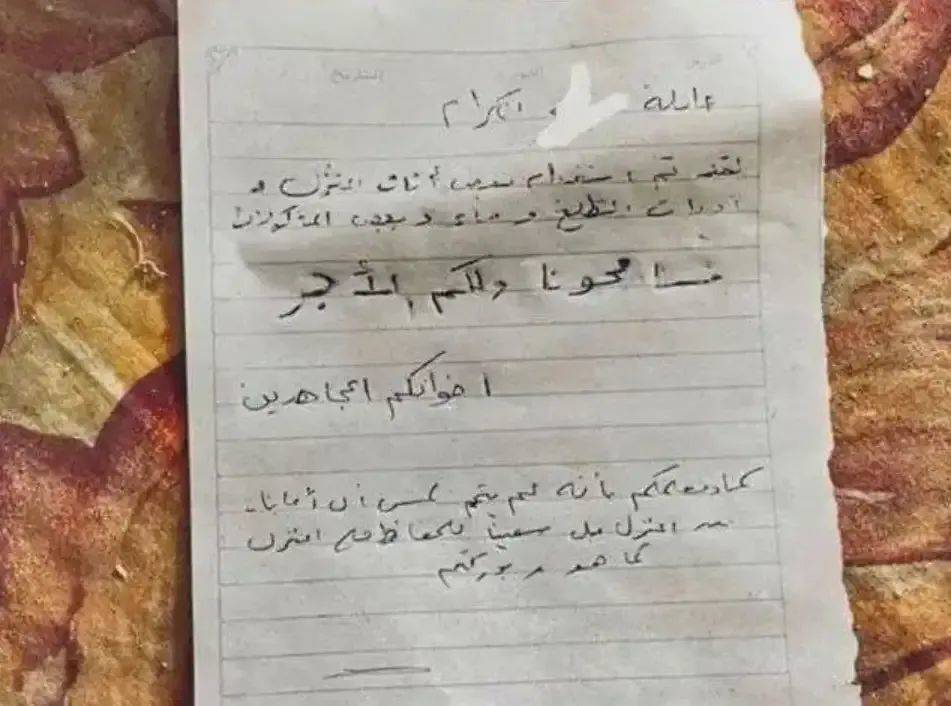 عائلة و الكرام
لقد تم استخدام بعض أثاث المنزل و
أدوات الطبخ و ماء و بعض المأكولات
فسامحونا ولكم الأجر
اخوانكم المجاهدين
بأنه لم يتم لمس أي أمانات
المنزل بل سعينا للحفاظ على المنزل
كما هو وبوركتم